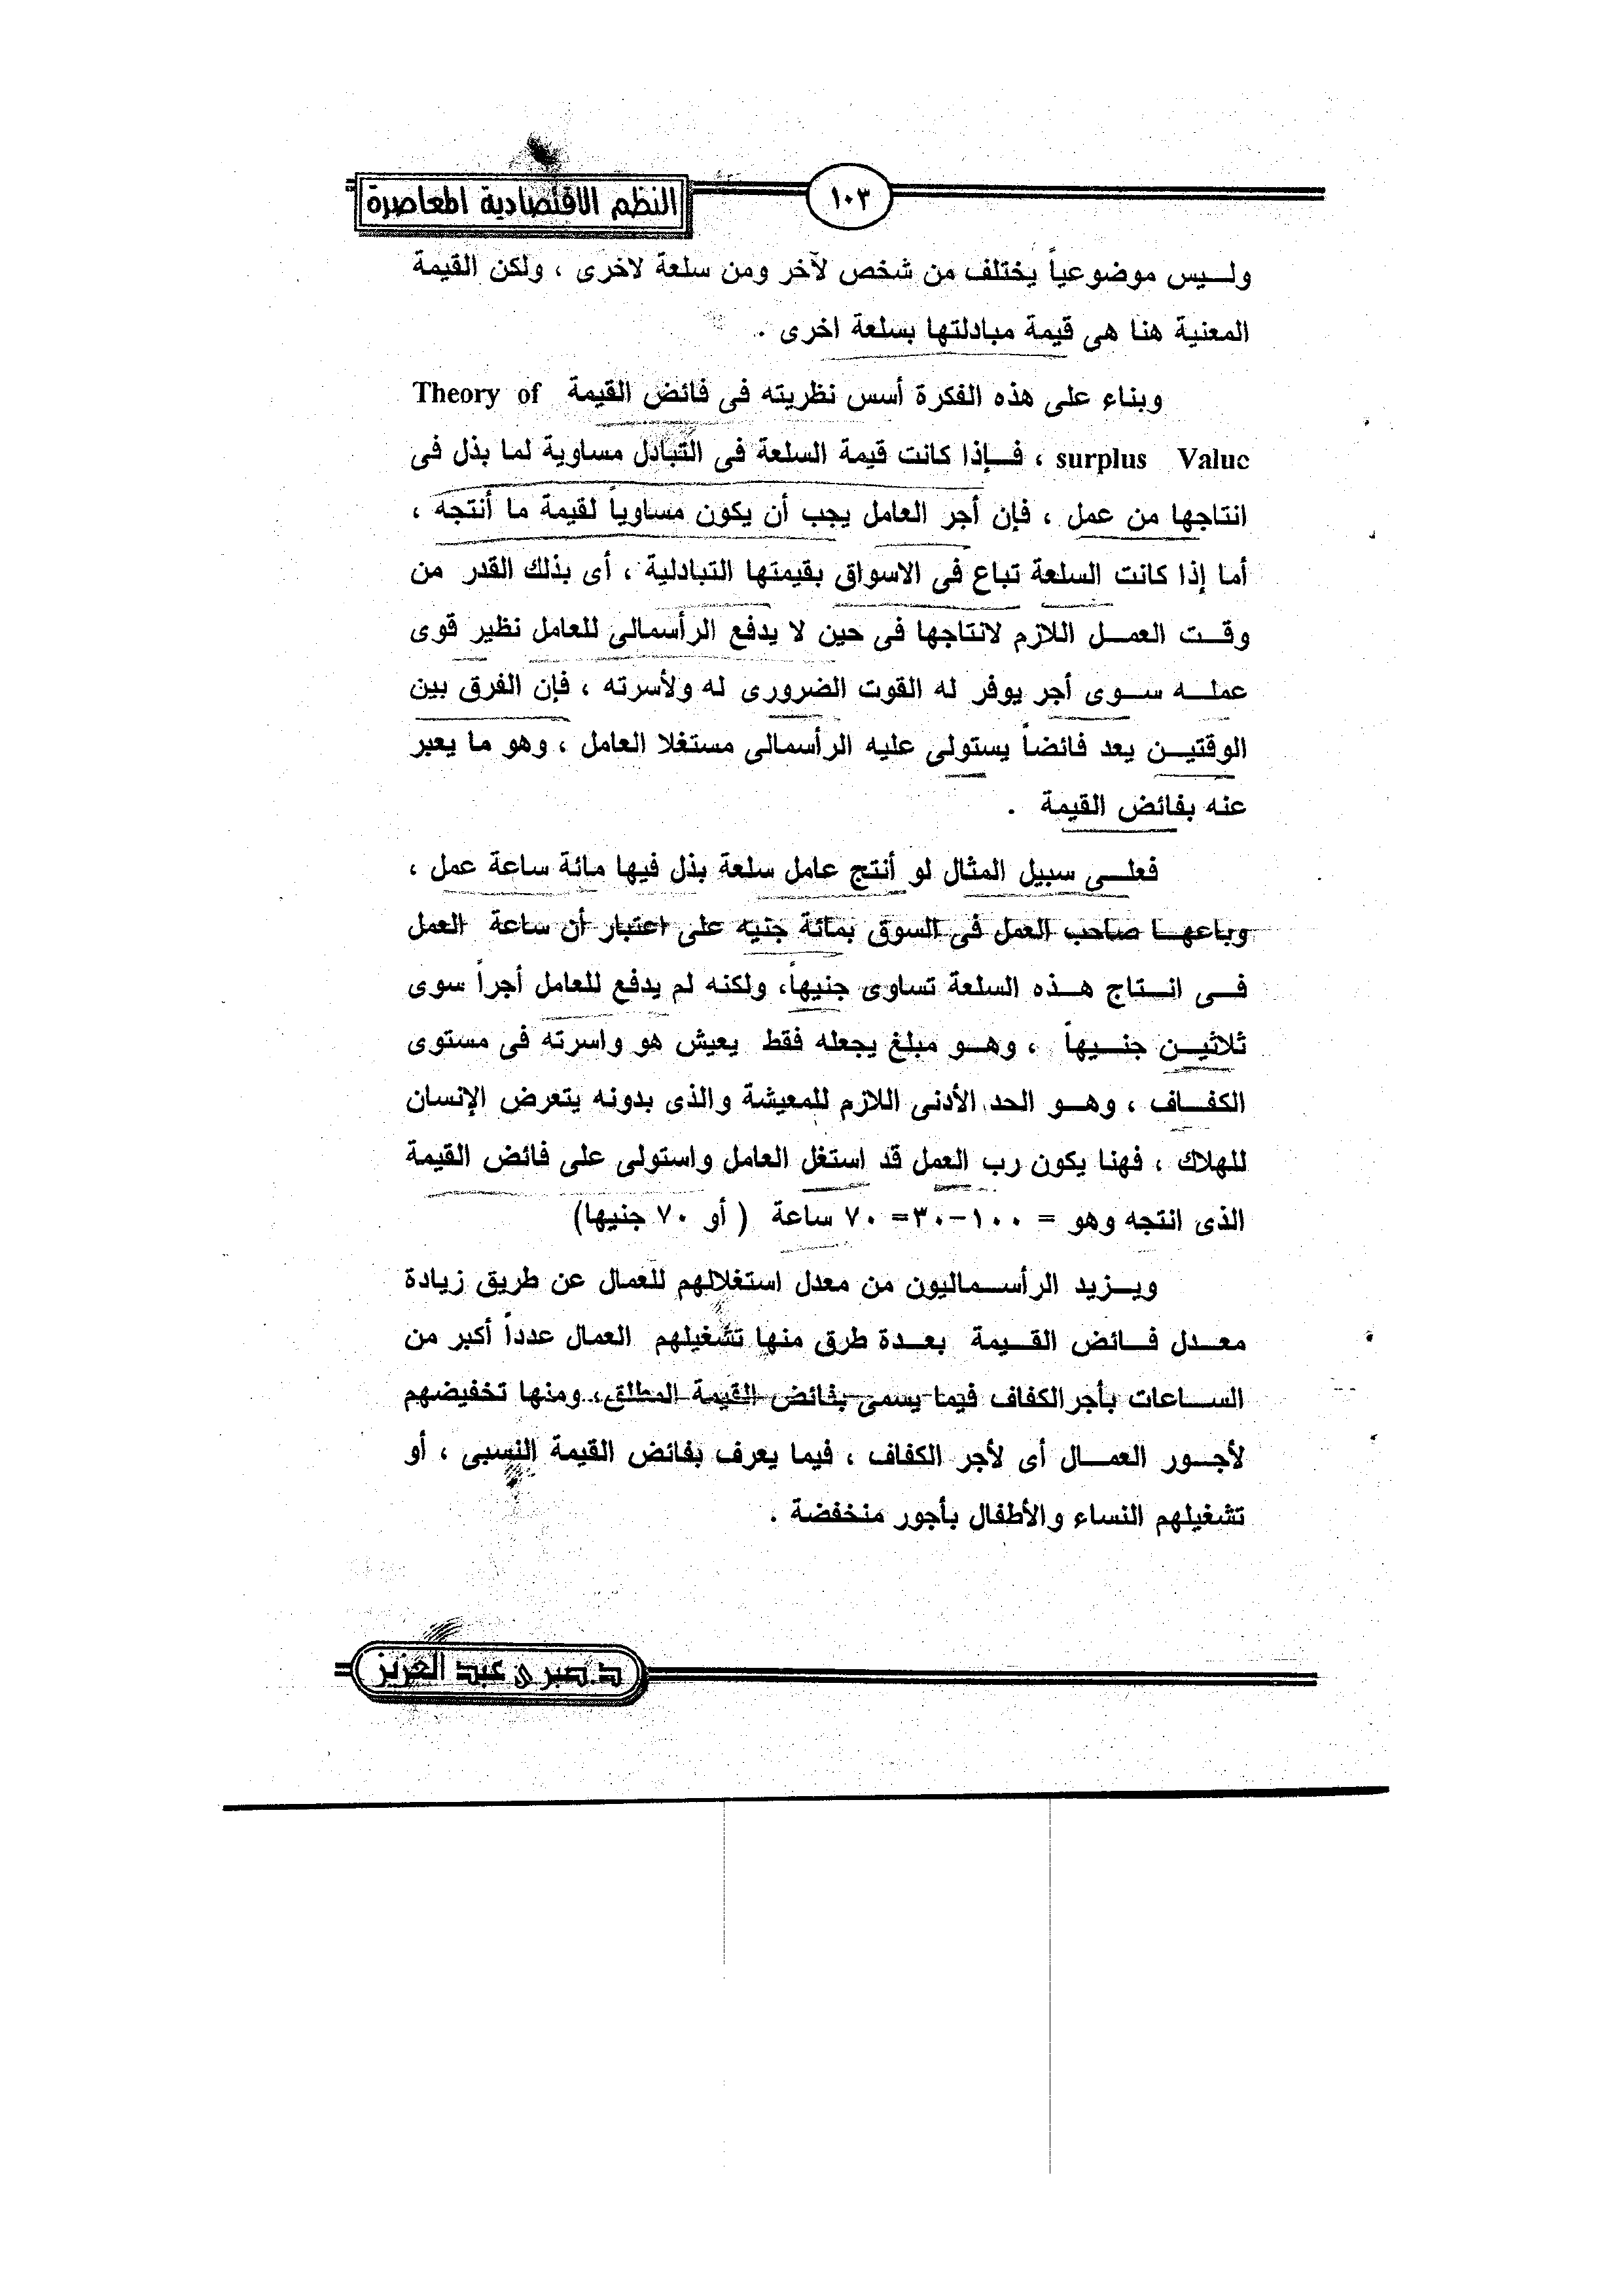 النظم الاقتصادية المعاصرة
١٠٣
وليس موضوعياً يختلف من شخص لآخر ومن سلعة لاخرى ، ولكن القيمة
المعنية هنا هى قيمة مبادلتها بسلعة اخرى .
وبناء على هذه الفكرة أسس نظريته فى فائض القيمة Theory of
surplus Value ، فإذا كانت قيمة السلعة فى التبادل مساوية لما بذل فى
انتاجها من عمل ، فإن أجر العامل يجب أن يكون مساوياً لقيمة ما أنتجه ،
أما إذا كانت السلعة تباع فى الاسواق بقيمتها التبادلية ، أى بذلك القدر من
وقت العمل اللازم لانتاجها فى حين لا يدفع الرأسمالى للعامل نظير قوى
عمله سوى أجر يوفر له القوت الضرورى له ولأسرته ، فإن الفرق بين
الوقتين يعد فائضاً يستولى عليه الرأسمالى مستغلا العامل ، وهو ما يعبر
عنه بفائض القيمة .
فعلى سبيل المثال لو أنتج عامل سلعة بذل فيها مائة ساعة عمل ،
وباعها صاحب العمل فى السوق بمائة جنيه على اعتبار أن ساعة العمل
فى انتاج هذه السلعة تساوى جنيهاً، ولكنه لم يدفع للعامل أجراً سوى
ثلاثين جنيهاً ، وهو مبلغ يجعله فقط يعيش هو واسرته فى مستوى
الكفاف ، وهو الحد الأدنى اللازم للمعيشة والذى بدونه يتعرض الإنسان
للهلاك ، فهنا يكون رب العمل قد استغل العامل واستولى على فائض القيمة
الذى انتجه وهو = ١٠٠-٣٠= ٧٠ ساعة ( أو ٧٠ جنيها)
ويزيد الرأسماليون من معدل استغلالهم للعمال عن طريق زيادة
معدل فائض القيمة بعدة طرق منها تشغيلهم العمال عدداً أكبر من
الساعات بأجر الكفاف فيما يسمى بفائض القيمة المطلق، ومنها تخفيضهم
لأجور العمال أى لأجر الكفاف ، فيما يعرف بفائض القيمة النسبى ، أو
تشغيلهم النساء والأطفال بأجور منخفضة .
د.صبرى عبد العزيز